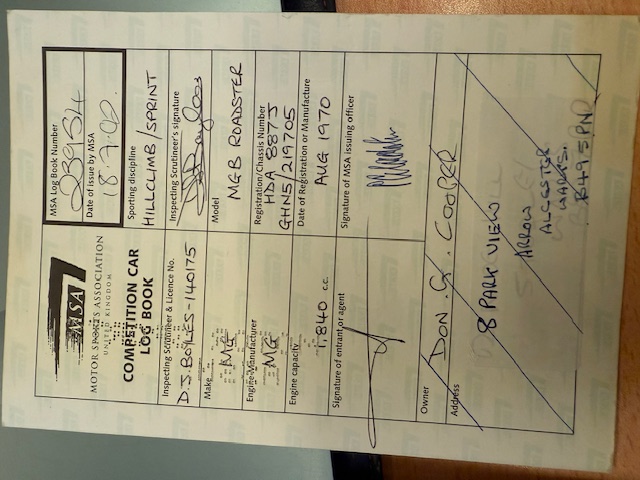 MSA
MOTOR SPORTS ASSOCIATION
UNITED KINGDOM
COMPETITION CAR
LOG BOOK
MSA Log Book Number
Date of issue by MSA
18.7.00.
Sporting discipline
HILLCLIMB/SPRINT
Inspecting Scrutineer & Licence No.
D.J. BOYLES-140175
Inspecting Scrutineer's signature
Make
MG
Model
MGB ROADSTER
Engine Manufacturer
MG
Registration/Chassis Number
HDA 887J
GHN5/219705
Engine capacity
1,840 c.c.
Date of Registration or Manufacture
AUG 1970
Signature of entrant or agent
Signature of MSA issuing officer
Owner
DON. G. COOPER
Address
8 PARK VIEW
ARROW
ALCESTER
WARKS.
B49 5PN